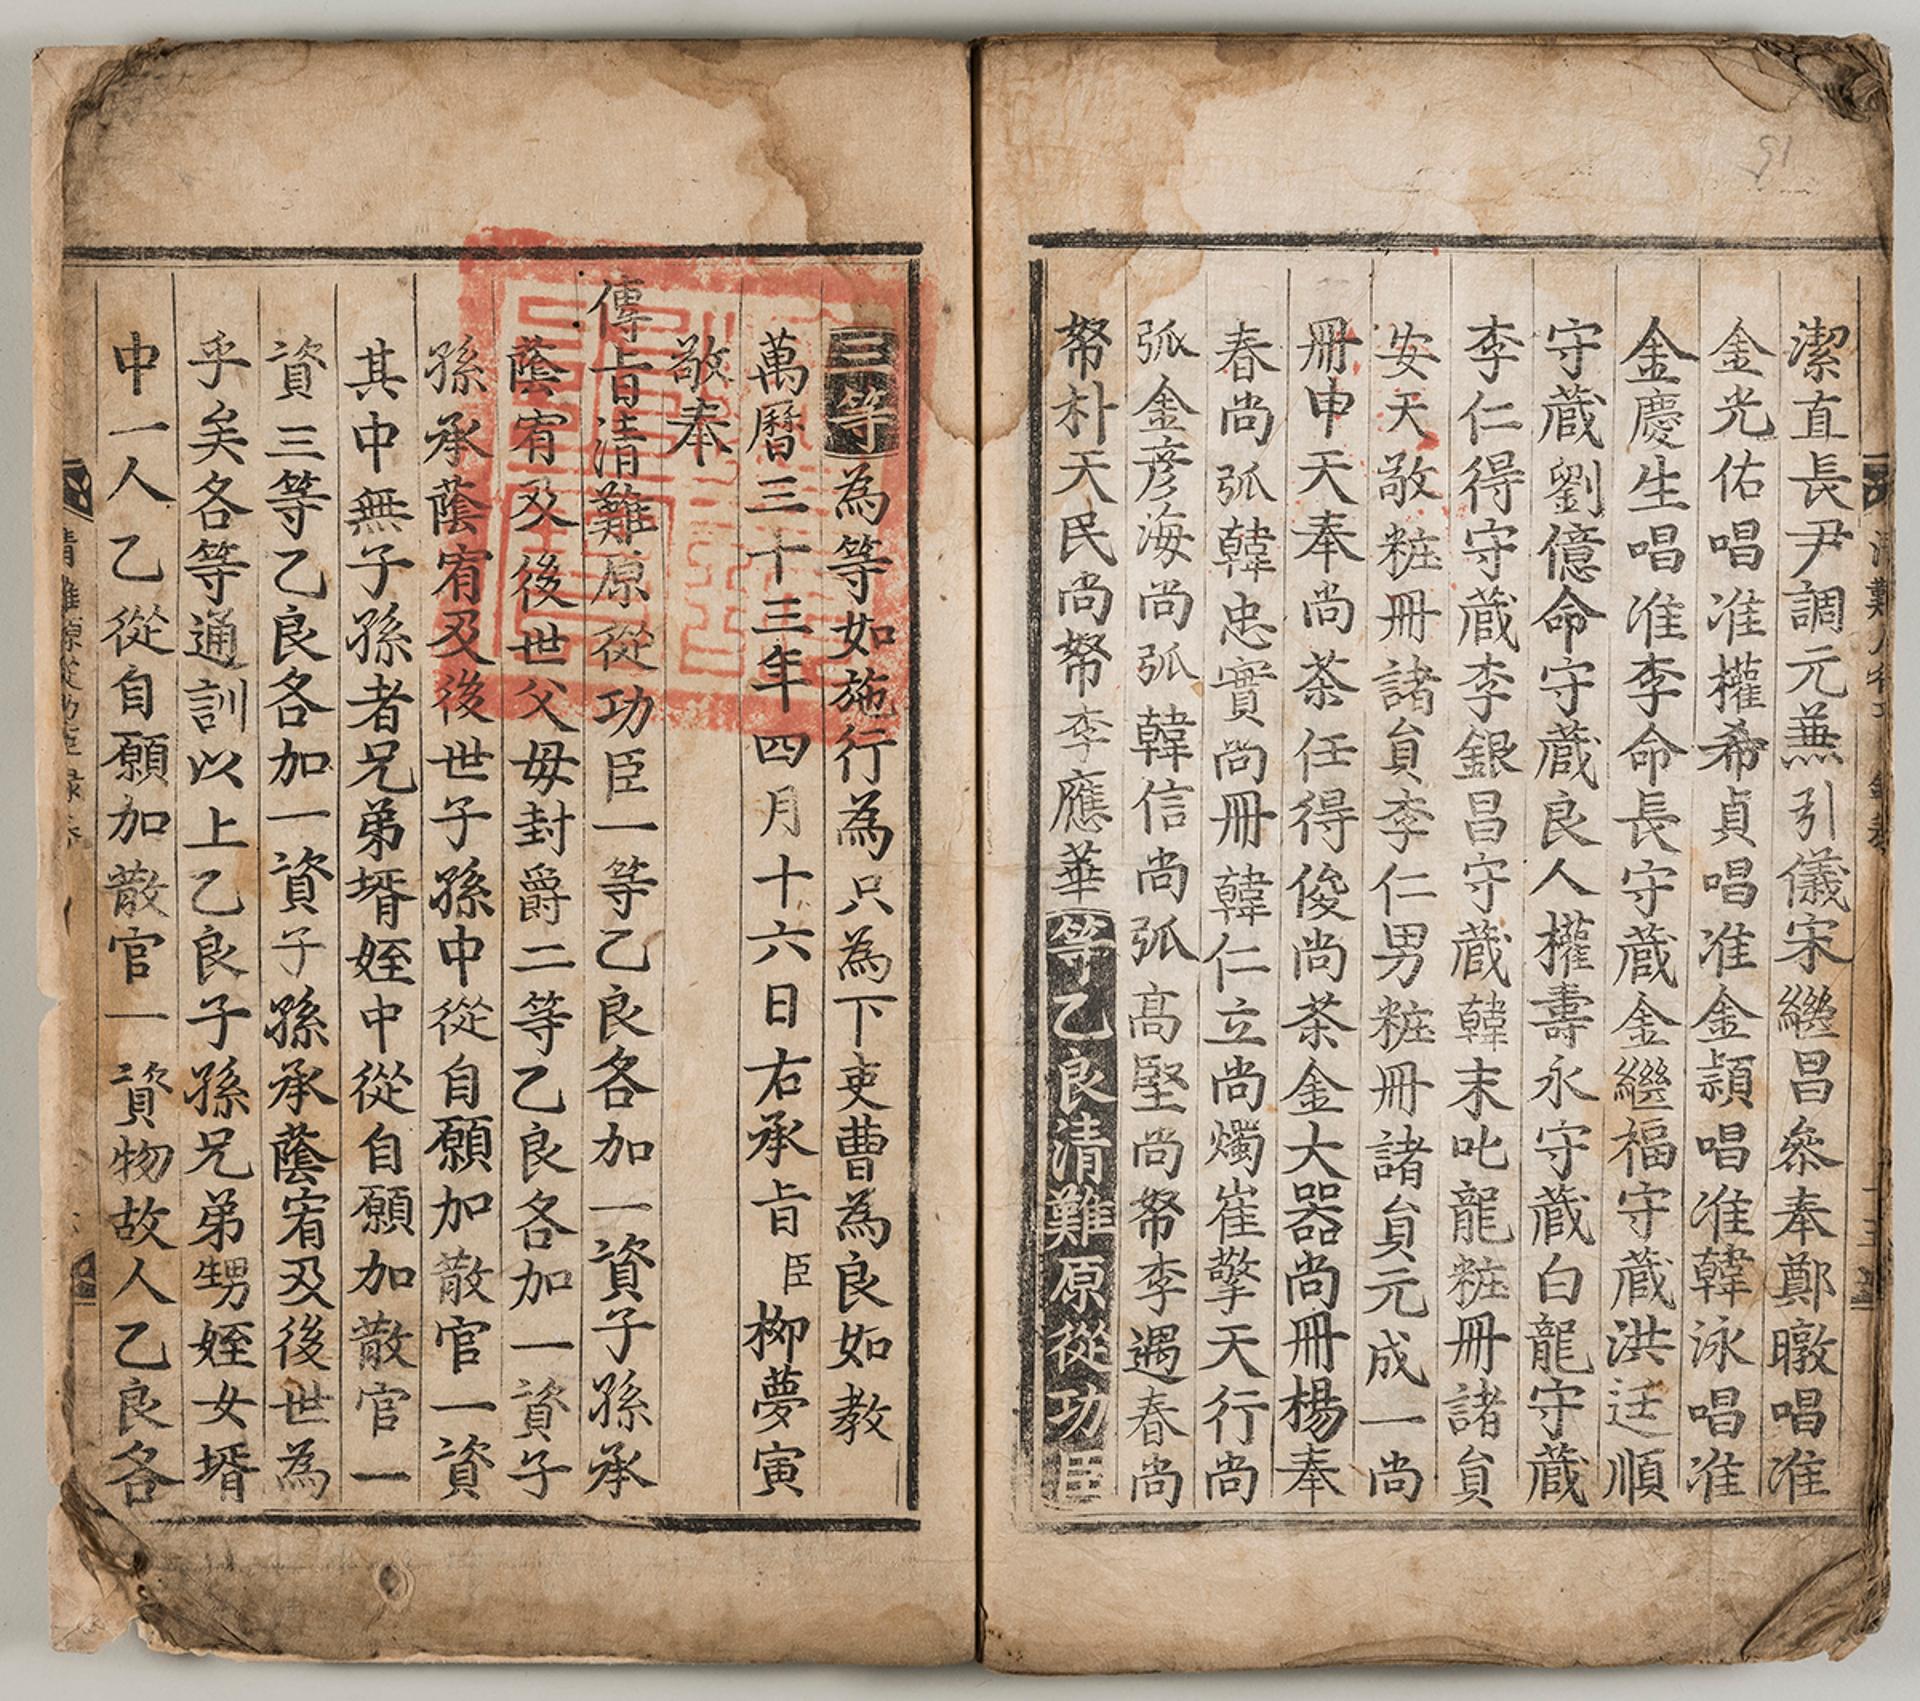 潔直長尹調元蕪引儀宋繼昌叅奉鄭暾唱准
金光佑唱准權希貞唱准金頴唱准韓泳唱准
金慶生唱准李命長守蔵金繼福守蔵洪迋順
守蔵劉億命守蔵良人權壽永守蔵白龍守蔵
李仁得守蔵李銀昌守蔵韓末叱龍粧冊諸貟
安天敬粧冊諸貟李仁男粧冊諸貟元成一尚
冊申天奉尚茶任得俊尚茶金大器尚冊楊奉
春尚弧韓忠實尚冊韓仁立尚燭崔擎天行尚
弧金彦海尚弧韓信尚弧高堅尚帑李遇春尚
帑朴天民尚帑李應華等乙良清難原從功臣
三等為等如施行為只為下吏曹為良如教
萬曆三十三年四月十六日右承旨臣柳夢寅
敬奉
傳旨清難原從功臣一等乙良各加一資子孫承
蔭宥及後世父母封爵二等乙良各加一資子
孫承蔭宥及後世子孫中從自願加散官一資
其中無子孫者兄弟壻姪中從自願加散官一
資三等乙良各加一資子孫承蔭宥及後世為
乎矣各等通訓以上乙良子孫兄弟甥姪女壻
中一人乙從自願加散官一資物故人乙良各